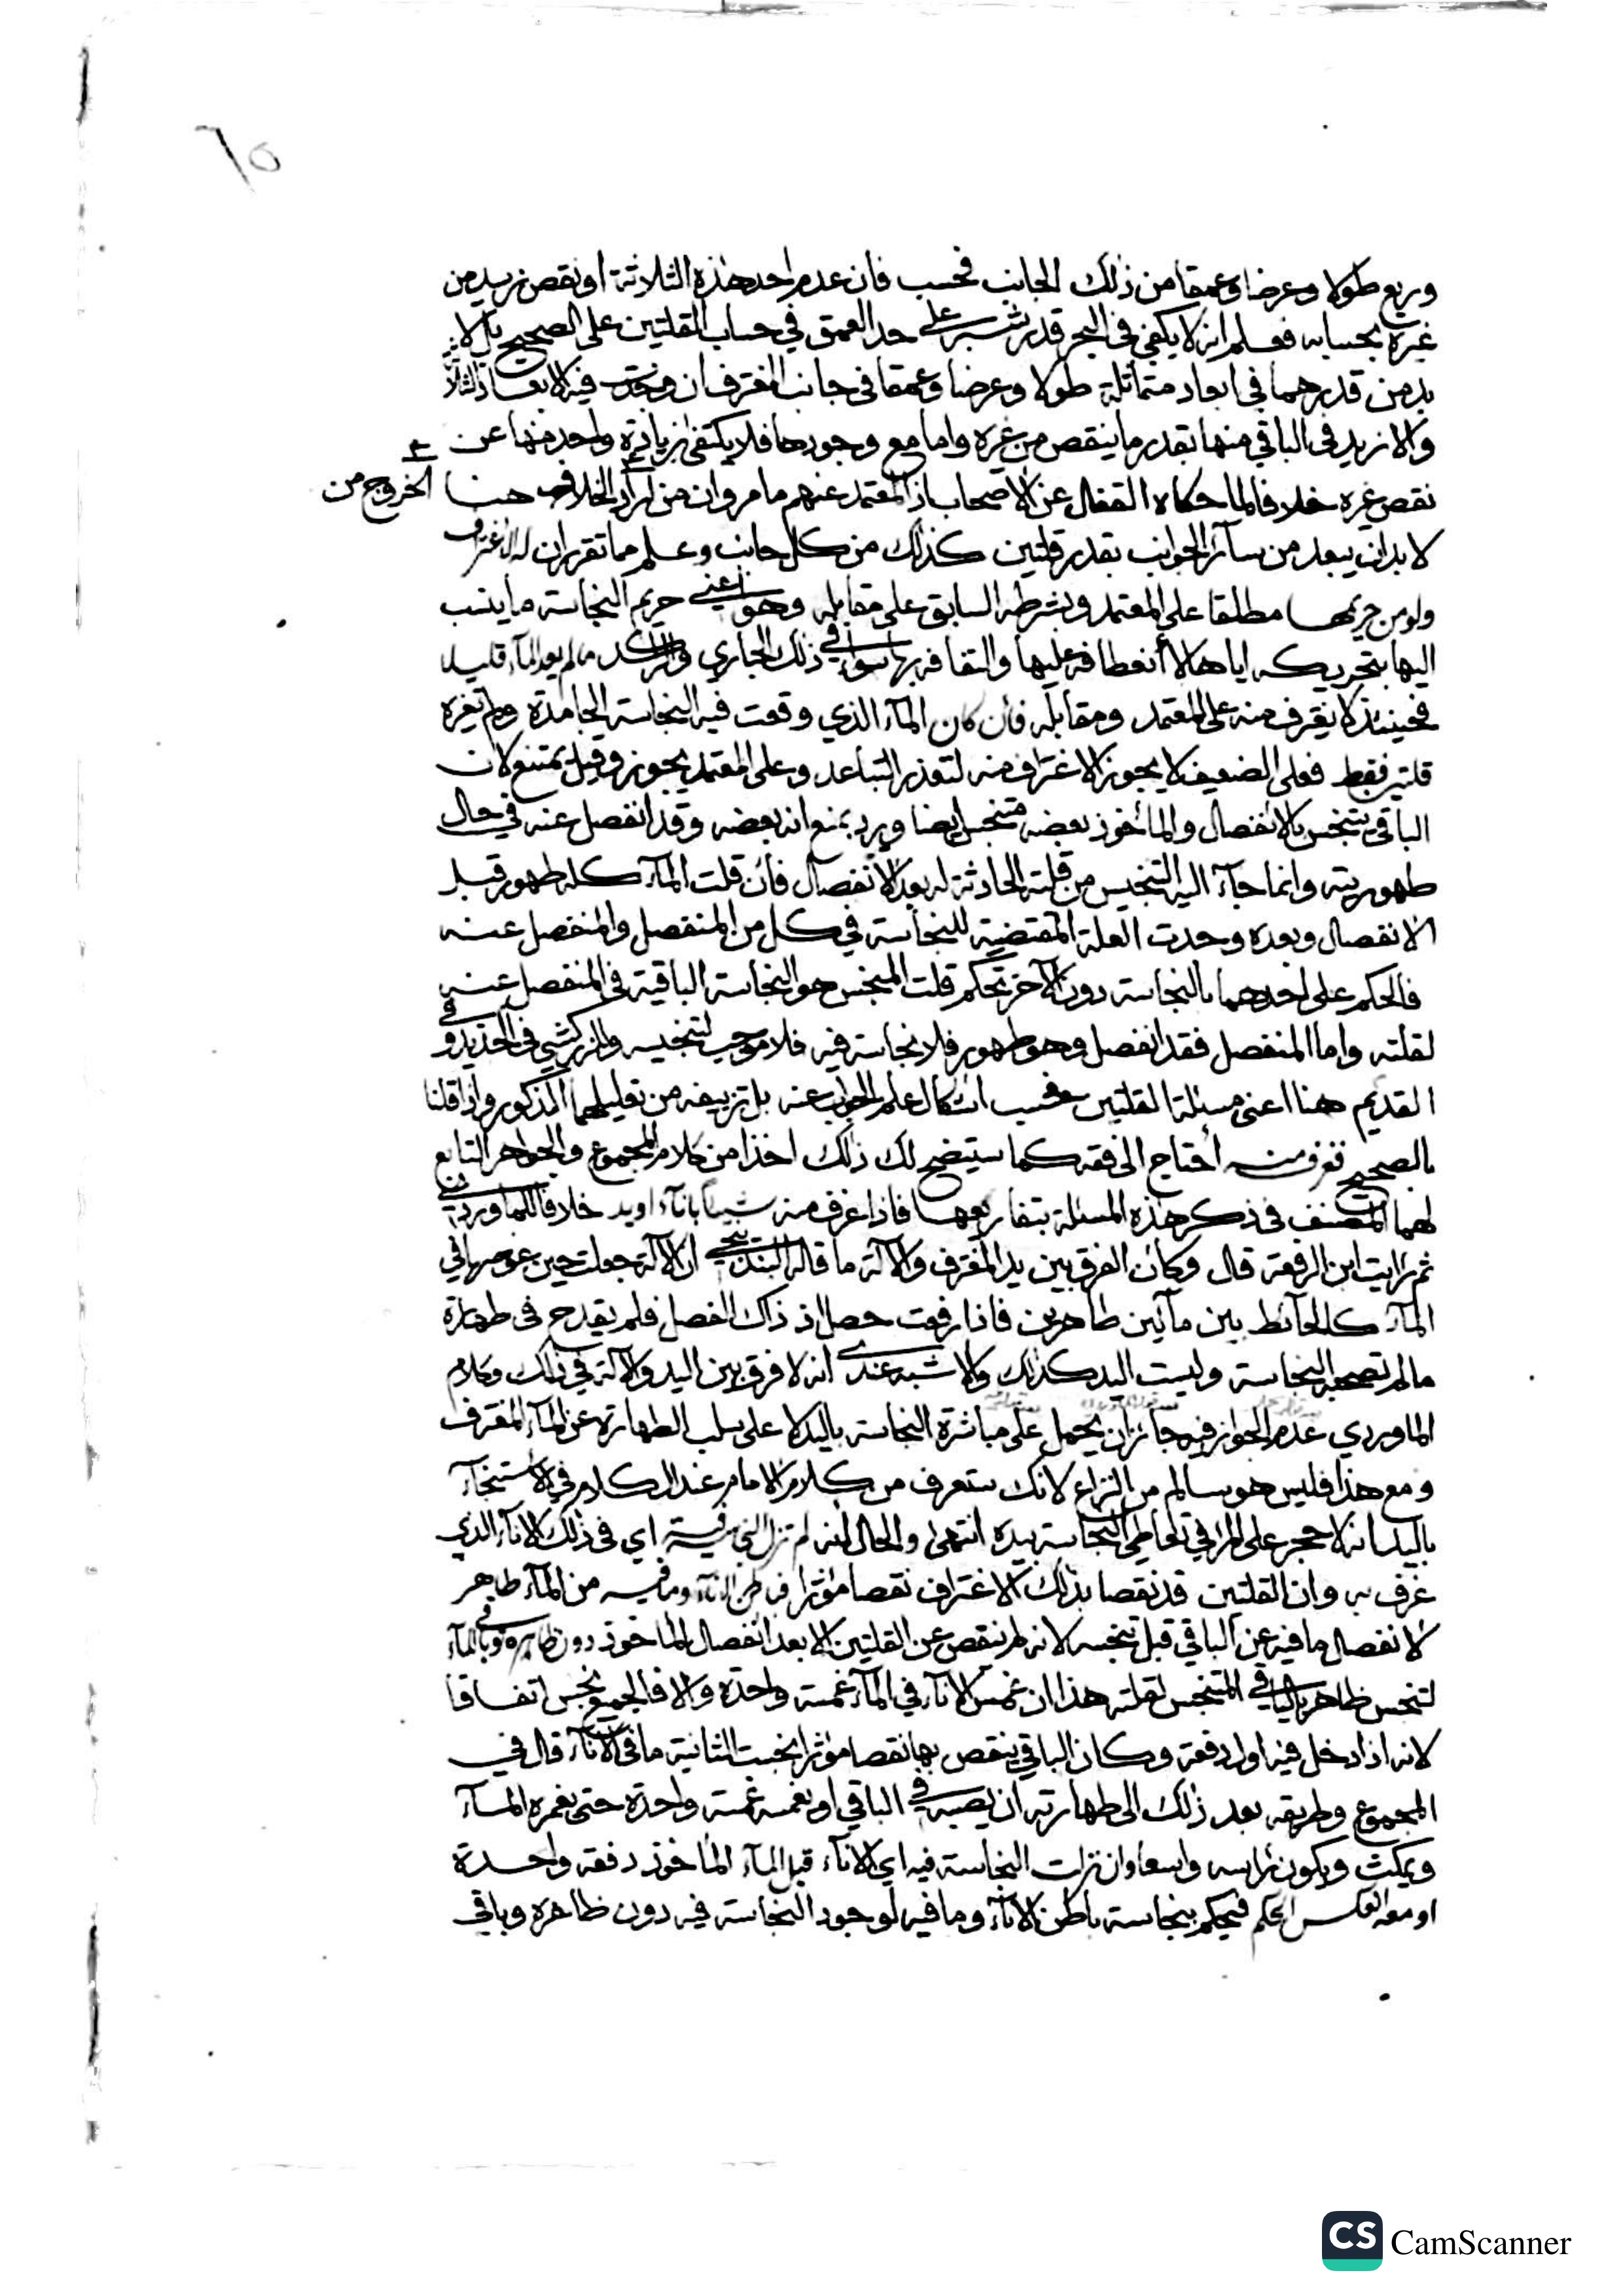 ٦٥
وربع طولا وعرضا وعمقا من ذلك الجانب فحسب فان عدم احد هذه الثلاثة او نقص زيد من
غيره بحسابه فعلم انه لا يكفي في البحر قدر شبر على حد العمق في حساب القلتين على الصحيح بل لا
بد من قدرهما في ابعاد متماثلة طولا وعرضا وعمقا في جانب المغترف ان وجدت فيه الابعاد الثلاثة
والا زيد في الباقي منها بقدر ما ينقص من غيره واما مع وجودها فلا يكتفى بزيادة واحد منها عن
نقص غيره خلافا لما حكاه القفال عن الاصحاب اذ المعتمد عنهم ما مر وان من اراد الخلاف هنا
الخروج من
لا بد ان يبعد من سائر الجوانب بقدر قلتين كذلك من كل جانب وعلم مما تقرر ان له الاغتراف
ولو من حريمها مطلقا على المعتمد وبشرطه السابق على مقابله وهو اعني حريم النجاسة ما ينسب
اليها بتحريكه اياها لا انعطافه عليها والتفافه بها سواء في ذلك الجاري والراكد ما لم يعد الماء قليلا
فحينئذ لا يغترف منه على المعتمد ومقابله فان كان الماء الذي وقعت فيه النجاسة الجامدة ولم تغيره
قلتين فقط فعلى الضعيف لا يجوز الاغتراف منه لتعذر التباعد وعلى المعتمد يجوز وقيل يمتنع لان
الباقي يتنجس بالانفصال والمأخوذ بعضه متنجس ايضا ويرد بمنع انه بعضه وقد انفصل عنه في حال
طهوريته وانما جآء اليه التنجيس من قلته الحادثة له بعد الانفصال فان قلت المآء كله طهور قبل
الانفصال وبعده وحدت العلة المقتضية للنجاسة في كل من المنفصل والمنفصل عنه
فالحكم على احدهما بالنجاسة دون الآخر تحكم قلت المنجس هو النجاسة الباقية في المنفصل عنه
لقلته واما المنفصل فقد انفصل وهو طهور فلا نجاسة فيه فلا موجب لتنجيسه وللزركشي في الجديد وفي
القديم هنا اعني مسئلة القلتين فحسب اشكال علم الجواب عنه بل تزييفه من تعليلهما المذكور واذا قلنا
بالصحيح تغرف منه احتاج الى فقه كما سيتضح لك ذلك اخذا من كلام المجموع والجواهر التابع
لهما المصنف في ذكر هذه المسئلة بتفاريعها فاذا غرف منه شيئا بانآء او يد خلافا للماوردي
ثم رايت ابن الرفعة قال وكأن الفرق بين يد المغترف والآلة ما قاله البندنيجي ان الآلة جعلت حين غوصها في
المآء كالحآئط بين مآئين طاهرين فاذا رفعت حصل اذ ذاك الفصل فلم يقدح في طهارة
ما لم تصحبه النجاسة وليست اليد كذلك والاشبه عندي انه لا فرق بين اليد والآلة في ذلك وكلام
الماوردي عدم الجواز فيه جائز ان يحمل على مباشرة النجاسة باليد لا على سلب الطهارة عن المآء المغترف
ومع هذا فليس هو بسالم من النزاع لانك ستعرف من كلام الامام عند الكلام في الاستنجآء
باليد انه لا حجر على المرء في تعاطي النجاسة بيده انتهى والحال انه لم تنزل النجاسة فيه اي في ذلك الانآء الذي
غرف به وان القلتين قد نقصا بذلك الاغتراف نقصا مؤثرا فباطن الانآء وما فيه من المآء طاهر
لانفصال ما فيه عن الباقي قبل تنجسه لانه لم ينقص عن القلتين الا بعد انفصال المأخوذ دون ظاهره وباقي المآء
لتنجس ظاهره بالباقي المتنجس لقلته هذا ان غمس الانآء في المآء غمسة واحدة والا فالجميع نجس اتفاقا
لانه اذا دخل فيه اول دفعة وكان الباقي ينقص بها نقصا مؤثرا نجست الثانية ما في الانآء قال في
المجموع وطريقه بعد ذلك الى طهارته ان يصبه في الباقي او يغمسه غمسة واحدة حتى يغمره المآء
ويمكث ويكون رأسه واسعا وان نزلت النجاسة فيه اي الانآء قبل المآء المأخوذ دفعة واحدة
او معه انعكس الحكم فيحكم بنجاسة باطن الانآء وما فيه لوجود النجاسة فيه دون ظاهره وباقي
CS CamScanner